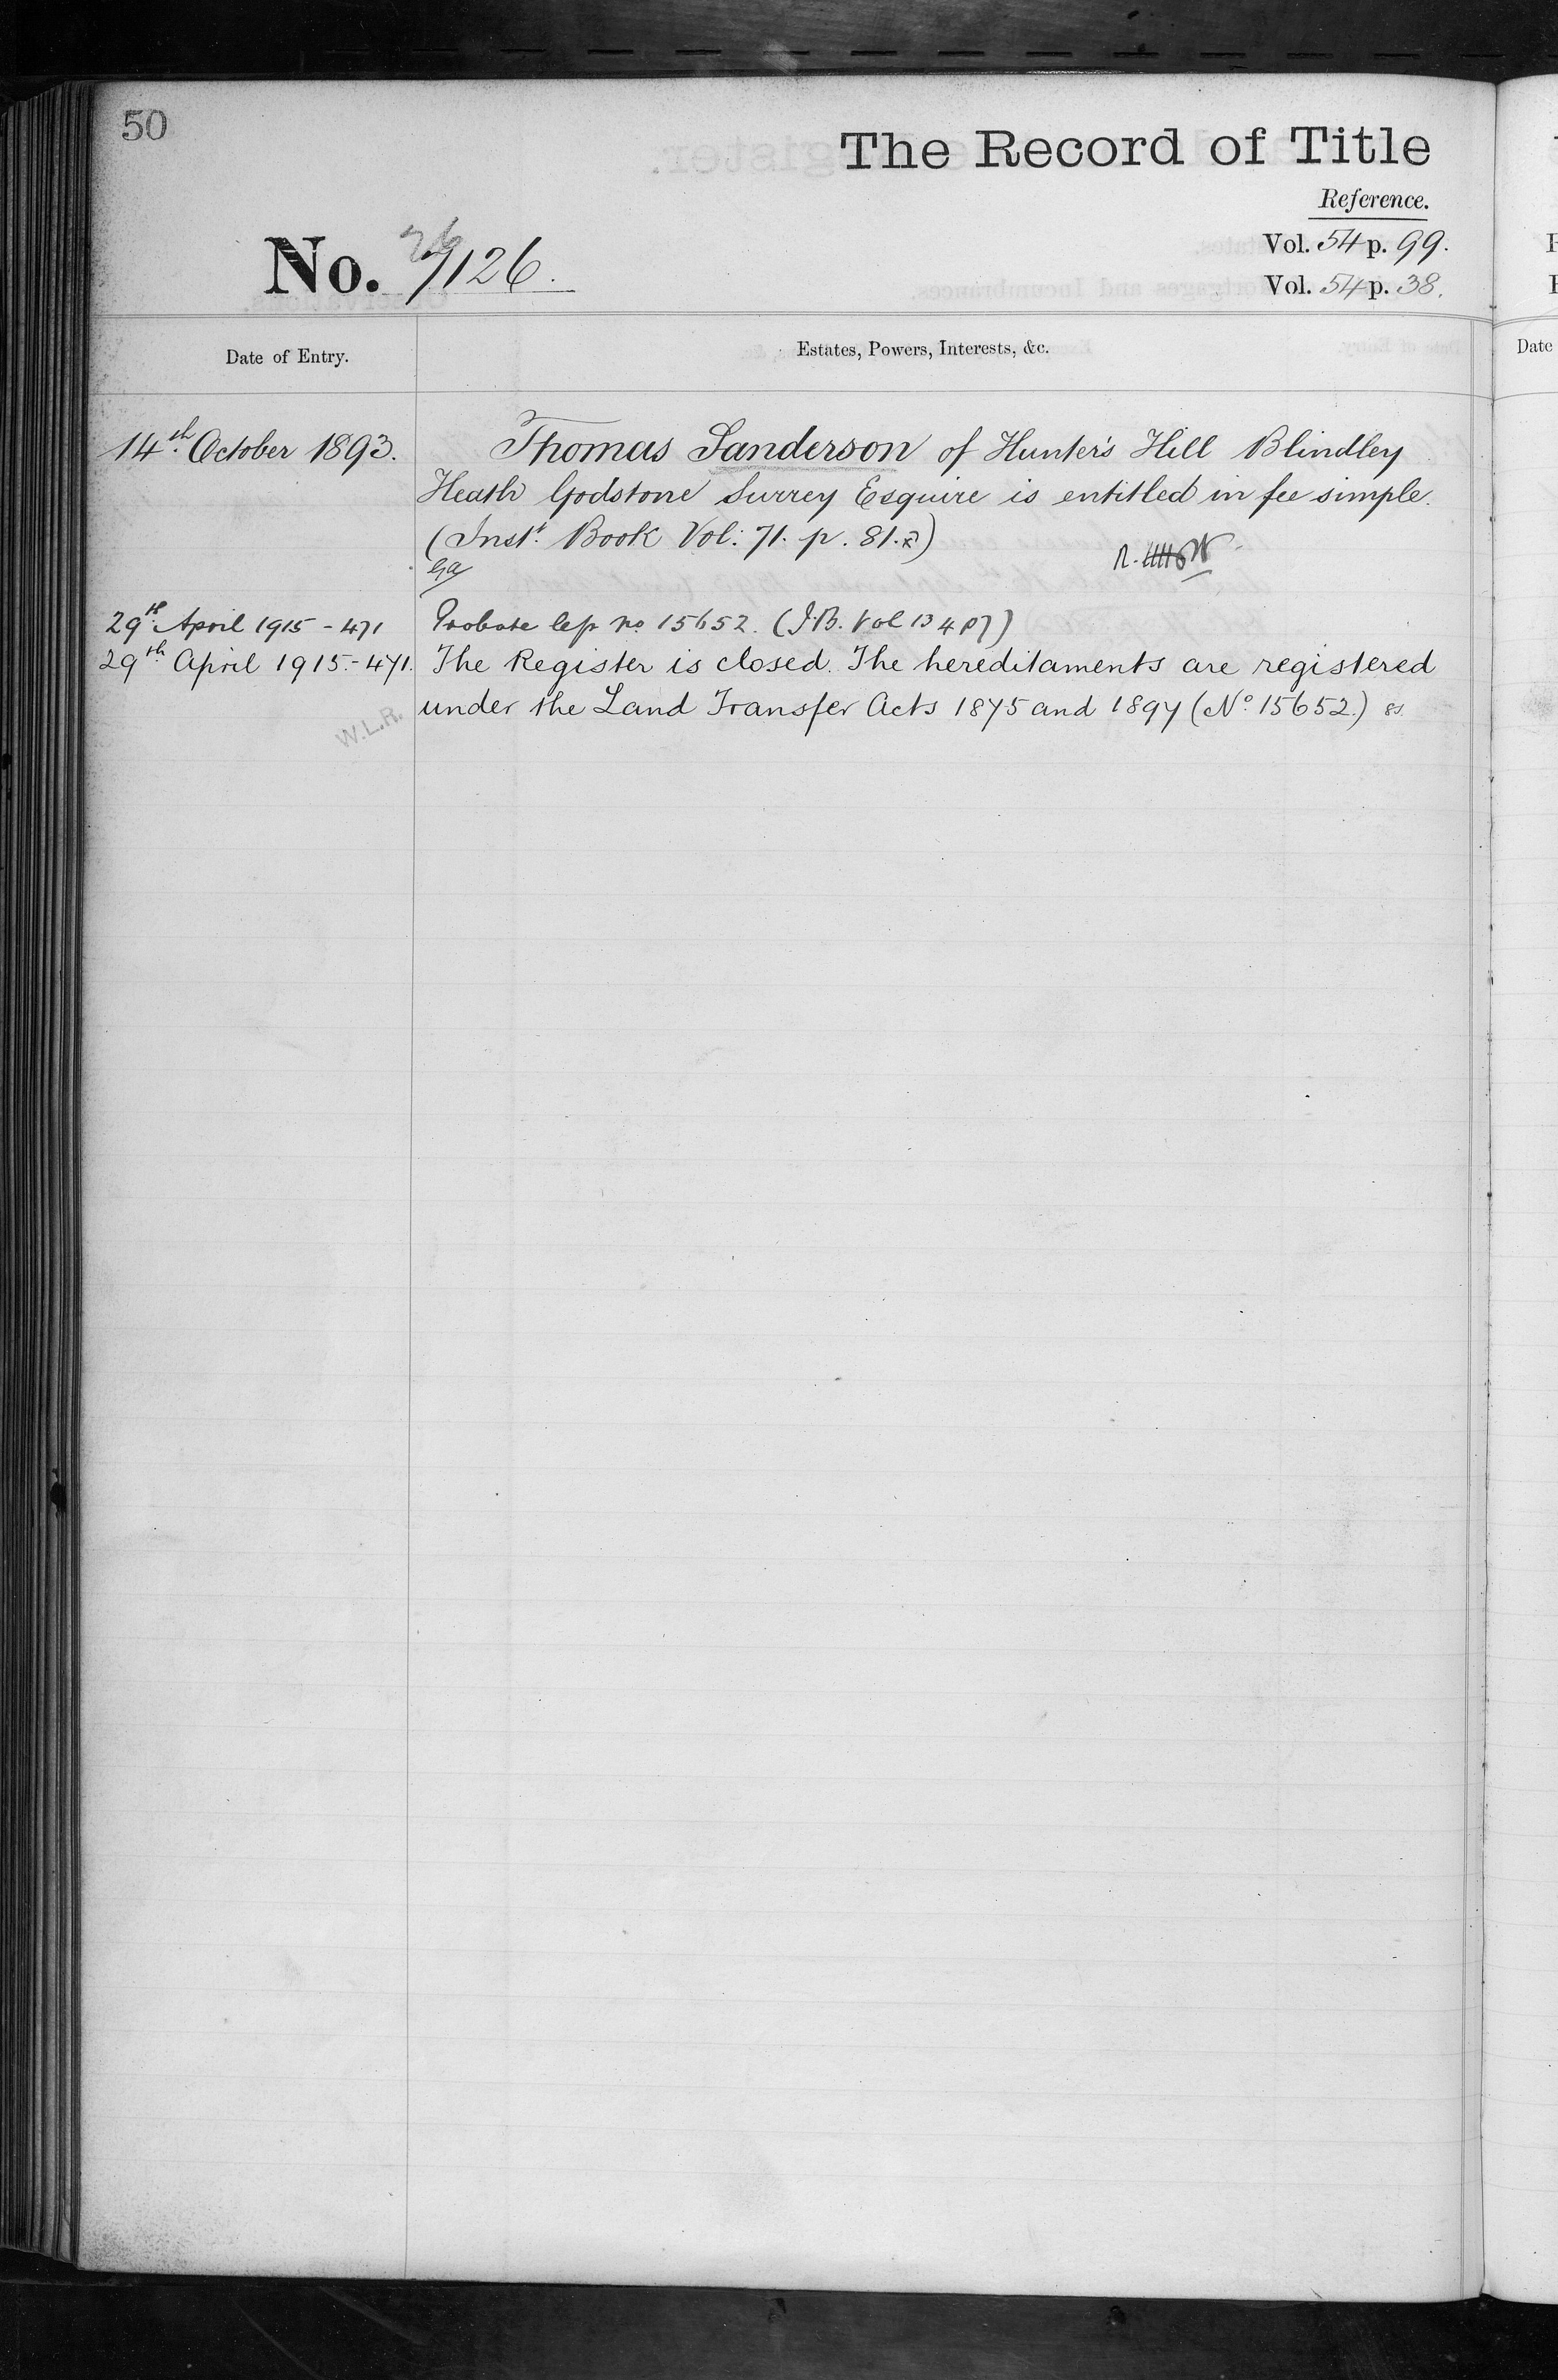 50
The Record of Title
Reference.
No. 26/126.
Vol. 54 p. 99.
Vol. 54 p. 38.
Date of Entry.
Estates, Powers, Interests, &c.
14th. October 1893.
Thomas Sanderson of Hunter's Hill Blindley
Heath Godstone Surrey Esquire is entitled in fee simple.
(Inst. Book Vol: 71. p. 81.)
29th April 1915 - 471
Probate no. 15652. (I.B. Vol 134 p7)
29th April 1915.- 471.
The Register is closed. The hereditaments are registered
under the Land Transfer Acts 1875 and 1897 (No. 15652.)
W.L.R.
Date